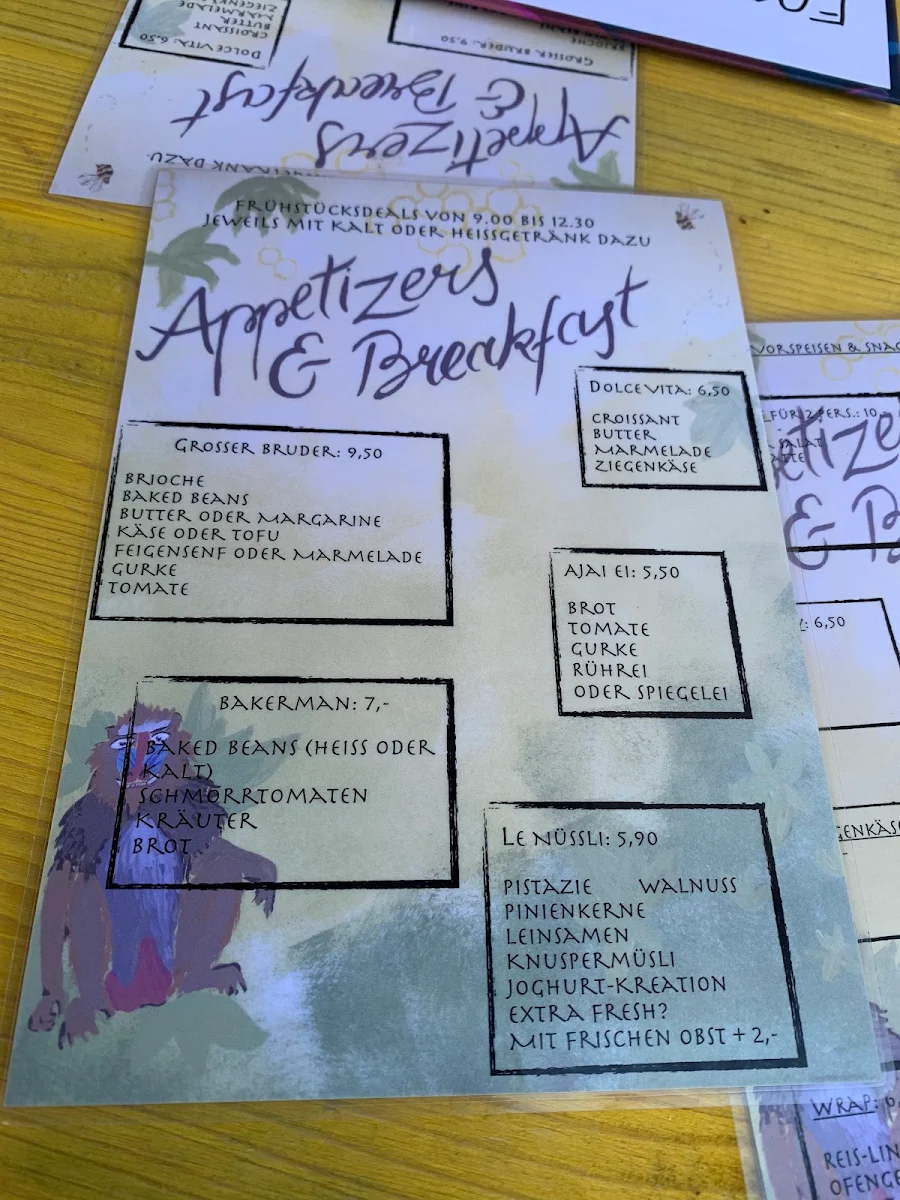 FRÜHSTÜCKSDEALS VON 9.00 BIS 12.30
JEWEILS MIT KALT ODER HEISSGETRÄNK DAZU
Appetizers
& Breakfast
DOLCE VITA: 6,50
CROISSANT
BUTTER
MARMELADE
ZIEGENKÄSE
GROSSER BRUDER: 9,50
BRIOCHE
BAKED BEANS
BUTTER ODER MARGARINE
KÄSE ODER TOFU
FEIGENSENF ODER MARMELADE
GURKE
TOMATE
AJAI EI: 5,50
BROT
TOMATE
GURKE
RÜHREI
ODER SPIEGELEI
BAKERMAN: 7,-
BAKED BEANS (HEISS ODER
KALT)
SCHMORRTOMATEN
KRÄUTER
BROT
LE NÜSSLI: 5,90
PISTAZIE WALNUSS
PINIENKERNE
LEINSAMEN
KNUSPERMÜSLI
JOGHURT-KREATION
EXTRA FRESH?
MIT FRISCHEN OBST + 2,-
DOLCE VITA: 6,50
CROISSANT
BUTTER
MARMELADE
GROSSER BRUDER: 9,50
BRIOCHE
Appetizers
& Breakfast
DAZU
VORSPEISEN & SNAC
FÜR 2 PERS.: 10
SALAT
&
: 6,50
WRAP: 6,
REIS-LIN
OFENGE